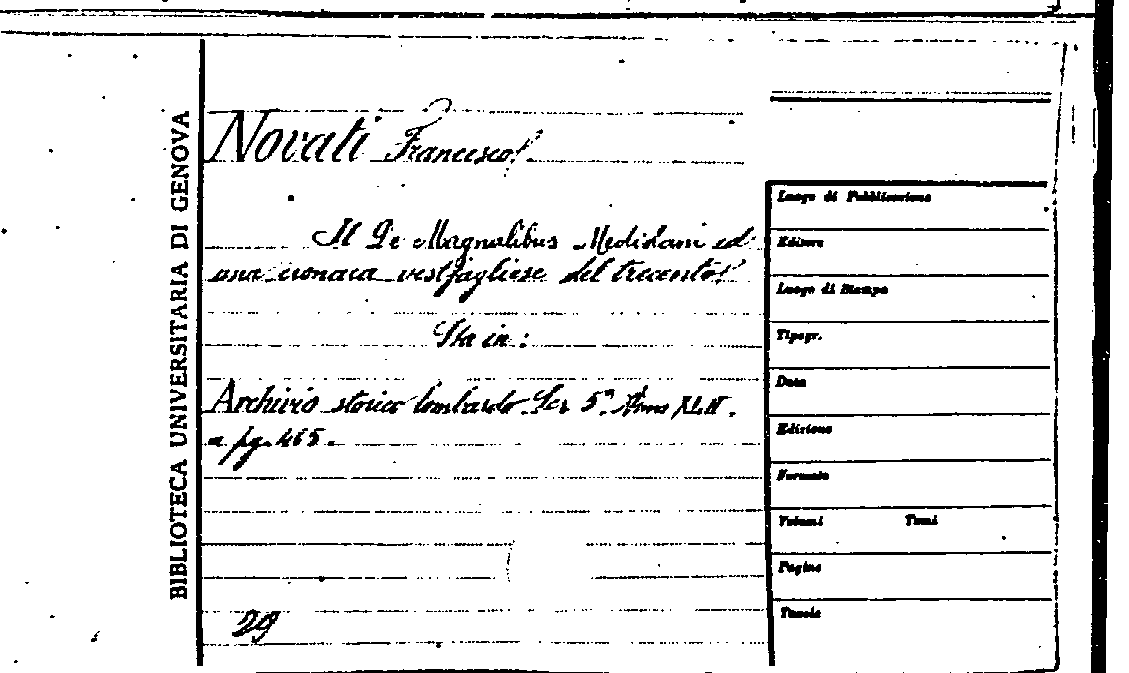 BIBLIOTECA UNIVERSITARIA DI GENOVA
Novati Francesco
Il De Magnalibus Mediolani ed
una cronaca vestfagliese del trecento
Sta in:
Archivio storico lombardo. Ser 5ª. Anno XLIV.
a pg. 465.
29
Luogo di Pubblicazione
Editore
Luogo di Stampa
Tipogr.
Data
Edizione
Formato
Volumi Tomi
Pagine
Tavole